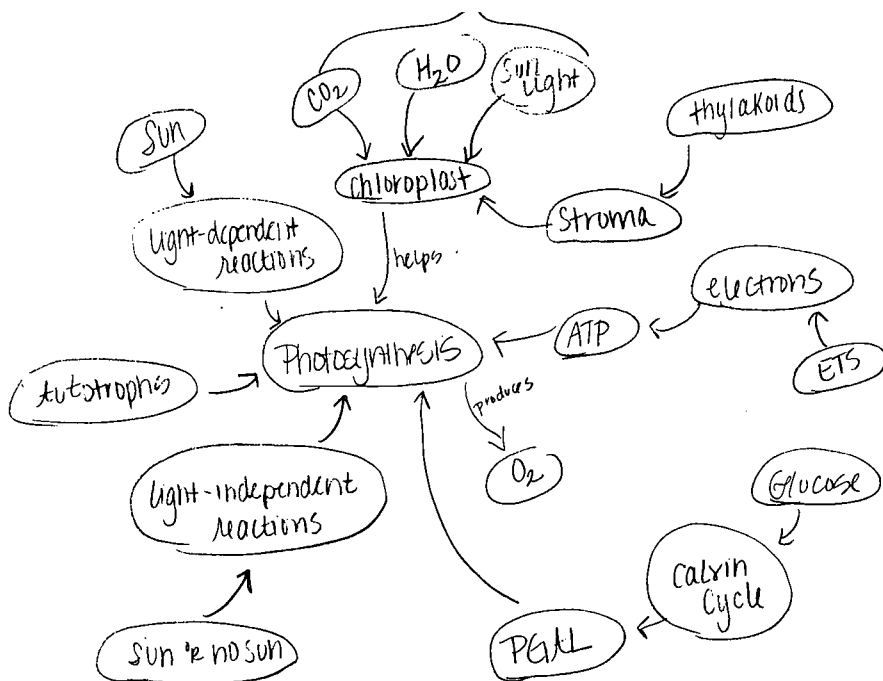 CO2
H2O
Sun
light
thylakoids
Sun
chloroplast
Stroma
light-dependent
reactions
helps
electrons
Photosynthesis
ATP
ETS
Autotrophs
produces
O2
light-independent
reactions
Glucose
Calvin
Cycle
PGAL
sun or no sun